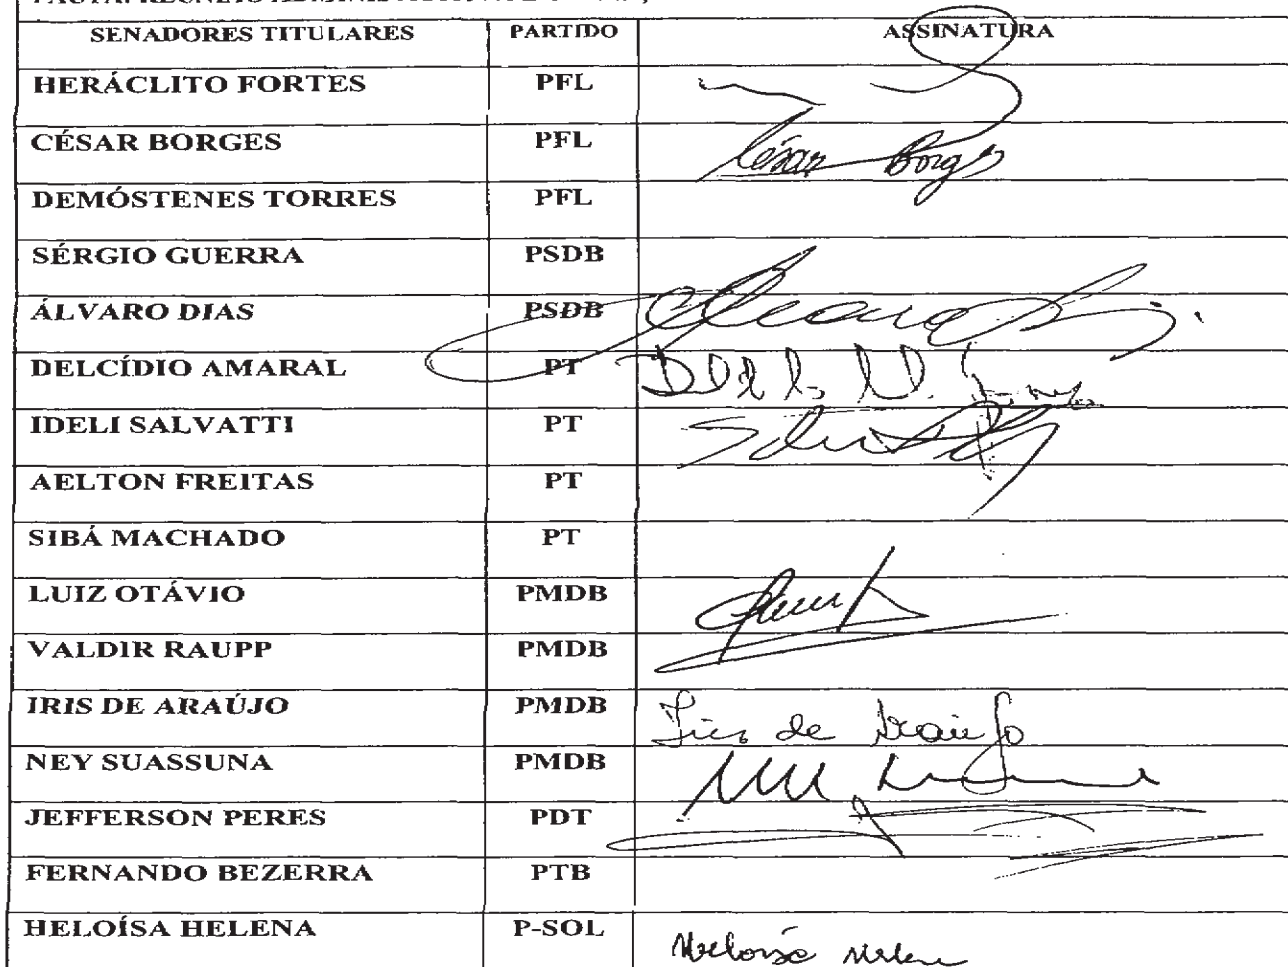 SENADORES TITULARES PARTIDO ASSINATURA
HERÁCLITO FORTES PFL
CÉSAR BORGES PFL César Borges
DEMÓSTENES TORRES PFL
SÉRGIO GUERRA PSDB
ÁLVARO DIAS PSDB
DELCÍDIO AMARAL PT
IDELI SALVATTI PT
AELTON FREITAS PT
SIBÁ MACHADO PT
LUIZ OTÁVIO PMDB
VALDIR RAUPP PMDB
IRIS DE ARAÚJO PMDB Iris de Araújo
NEY SUASSUNA PMDB
JEFFERSON PERES PDT
FERNANDO BEZERRA PTB
HELOÍSA HELENA P-SOL Heloísa Helena